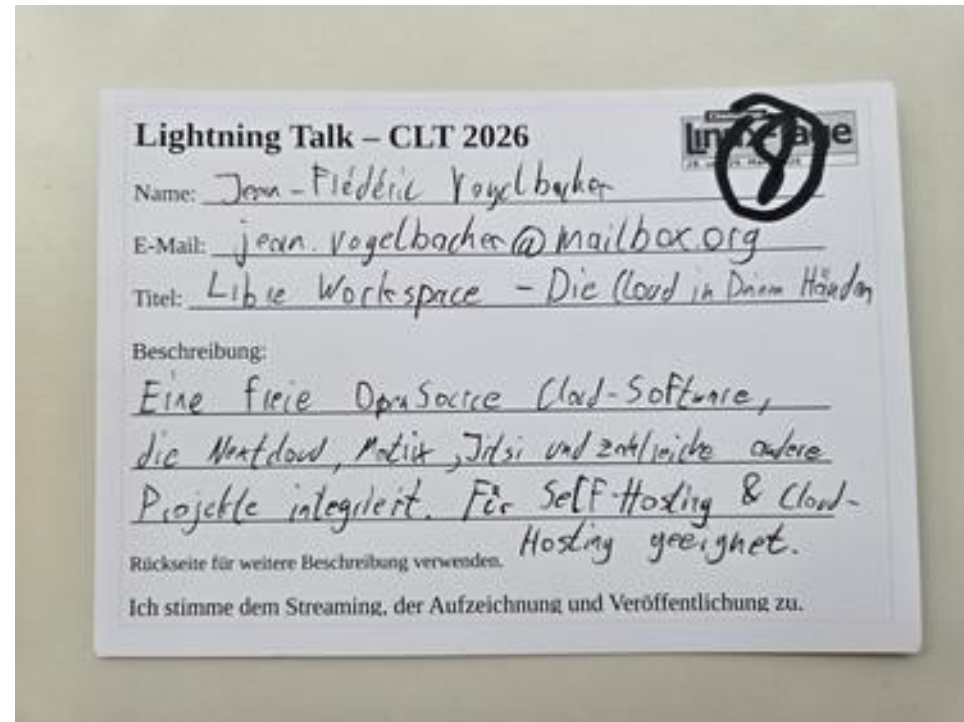 Lightning Talk – CLT 2026
Linux-Tage
8
Name: Jean-Frédéric Vogelbacher
E-Mail: jean.vogelbacher@mailbox.org
Titel: Libre Workspace – Die Cloud in Deinen Händen
Beschreibung:
Eine freie OpenSource Cloud-Software,
die Nextcloud, Matrix, Jitsi und zahlreiche andere
Projekte integriert. Für Self-Hosting & Cloud-
Hosting geeignet.
Rückseite für weitere Beschreibung verwenden.
Ich stimme dem Streaming, der Aufzeichnung und Veröffentlichung zu.